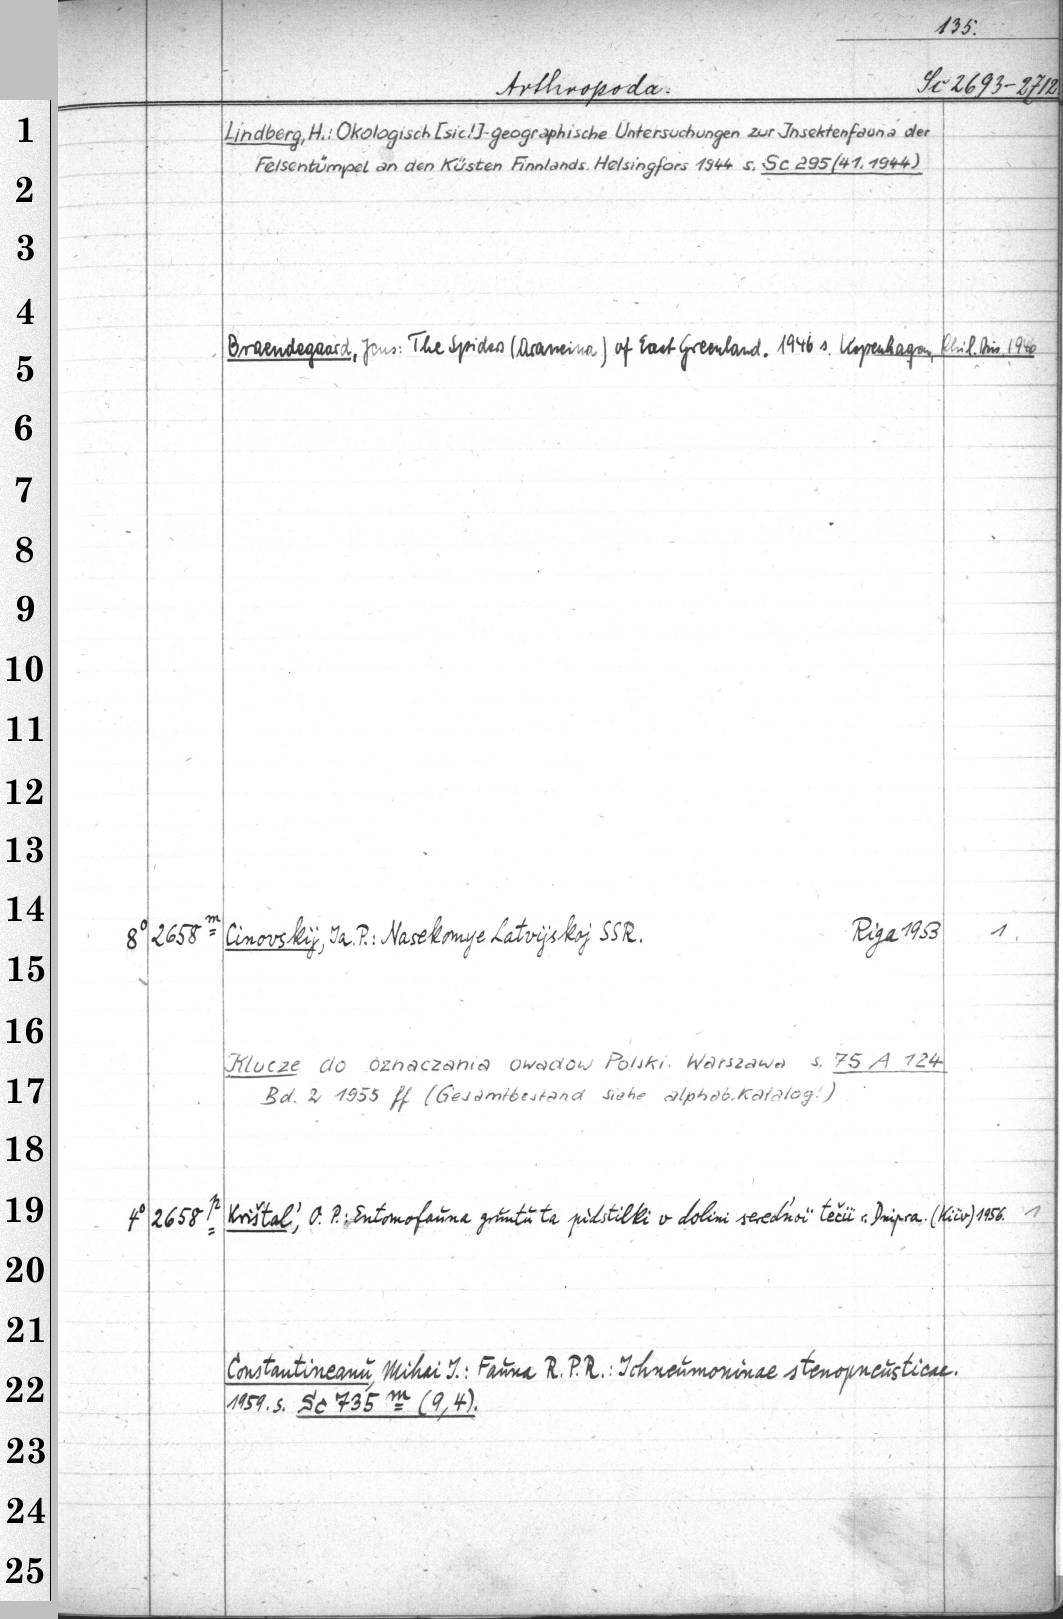 135.
Arthropoda. Sc 2693-2712
1
Lindberg, H.: Okologisch [sic!]-geographische Untersuchungen zur Insektenfauna der
Felsentümpel an den Küsten Finnlands. Helsingfors 1944 s. Sc 295 (41.1944)
2
3
4
Braendegaard, Jens: The Spiders (Araneina) of East Greenland. 1946 s. Kopenhagen, Phil. Diss. 1946
5
6
7
8
9
10
11
12
13
14
8° 2658 m Cinovskij, Ja. P.: Nasekomye Latvijskoj SSR. Riga 1953 1.
15
16
Klucze do oznaczania owadow Polski. Warszawa s. 75 A 124
17
Bd. 2 1955 ff (Gesamtbestand siehe alphab. Katalog!)
18
19
4° 2658 p Krištal', O. P.: Entomofauna gruntu ta pidstilki v dolini seredn'oï tečiï r. Dnipra. (Kiïv) 1956. 1
20
21
Constantineanu, Mihai I.: Fauna R.P.R.: Ichneumoninae stenopneusticae.
22
1959. s. Sc 735 m (9,4).
23
24
25